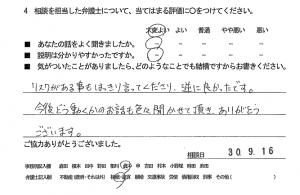 4 相談を担当した弁護士について、当てはまる評価に〇をつけてください。
大変よい よい 普通 やや悪い 悪い
■ あなたの話をよく聞きましたか。
■ 説明は分かりやすかったですか。
■ 気がついたことがありましたら、どのようなことでも結構ですからお書きください。
リスクがある事もはっきり言ってくださり、逆に良かったです。
今後どう動くかのお話も色々聞かせて頂き、ありがとう
ございます。
ご協力ありがとうございました。
相談日 30.9.16